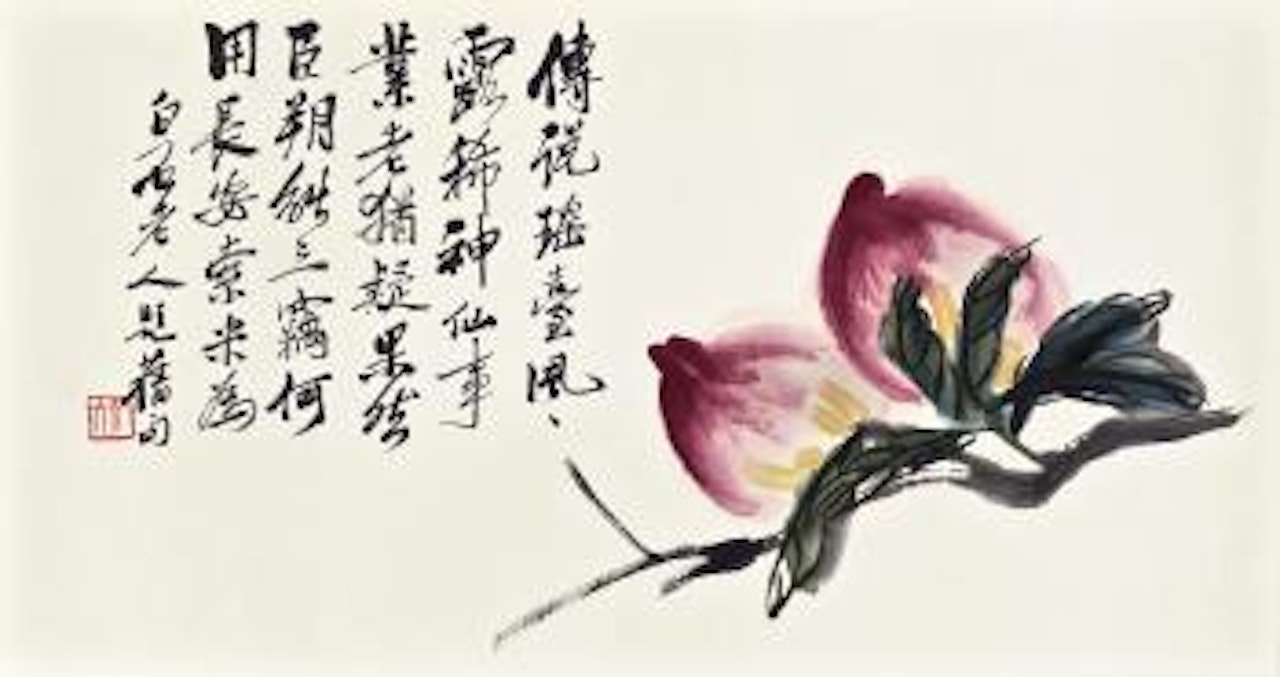 傳說瑤臺風、
露稀神仙事
業老猶疑果然
臣朔能三竊何
用長安索米為
白石老人題舊句